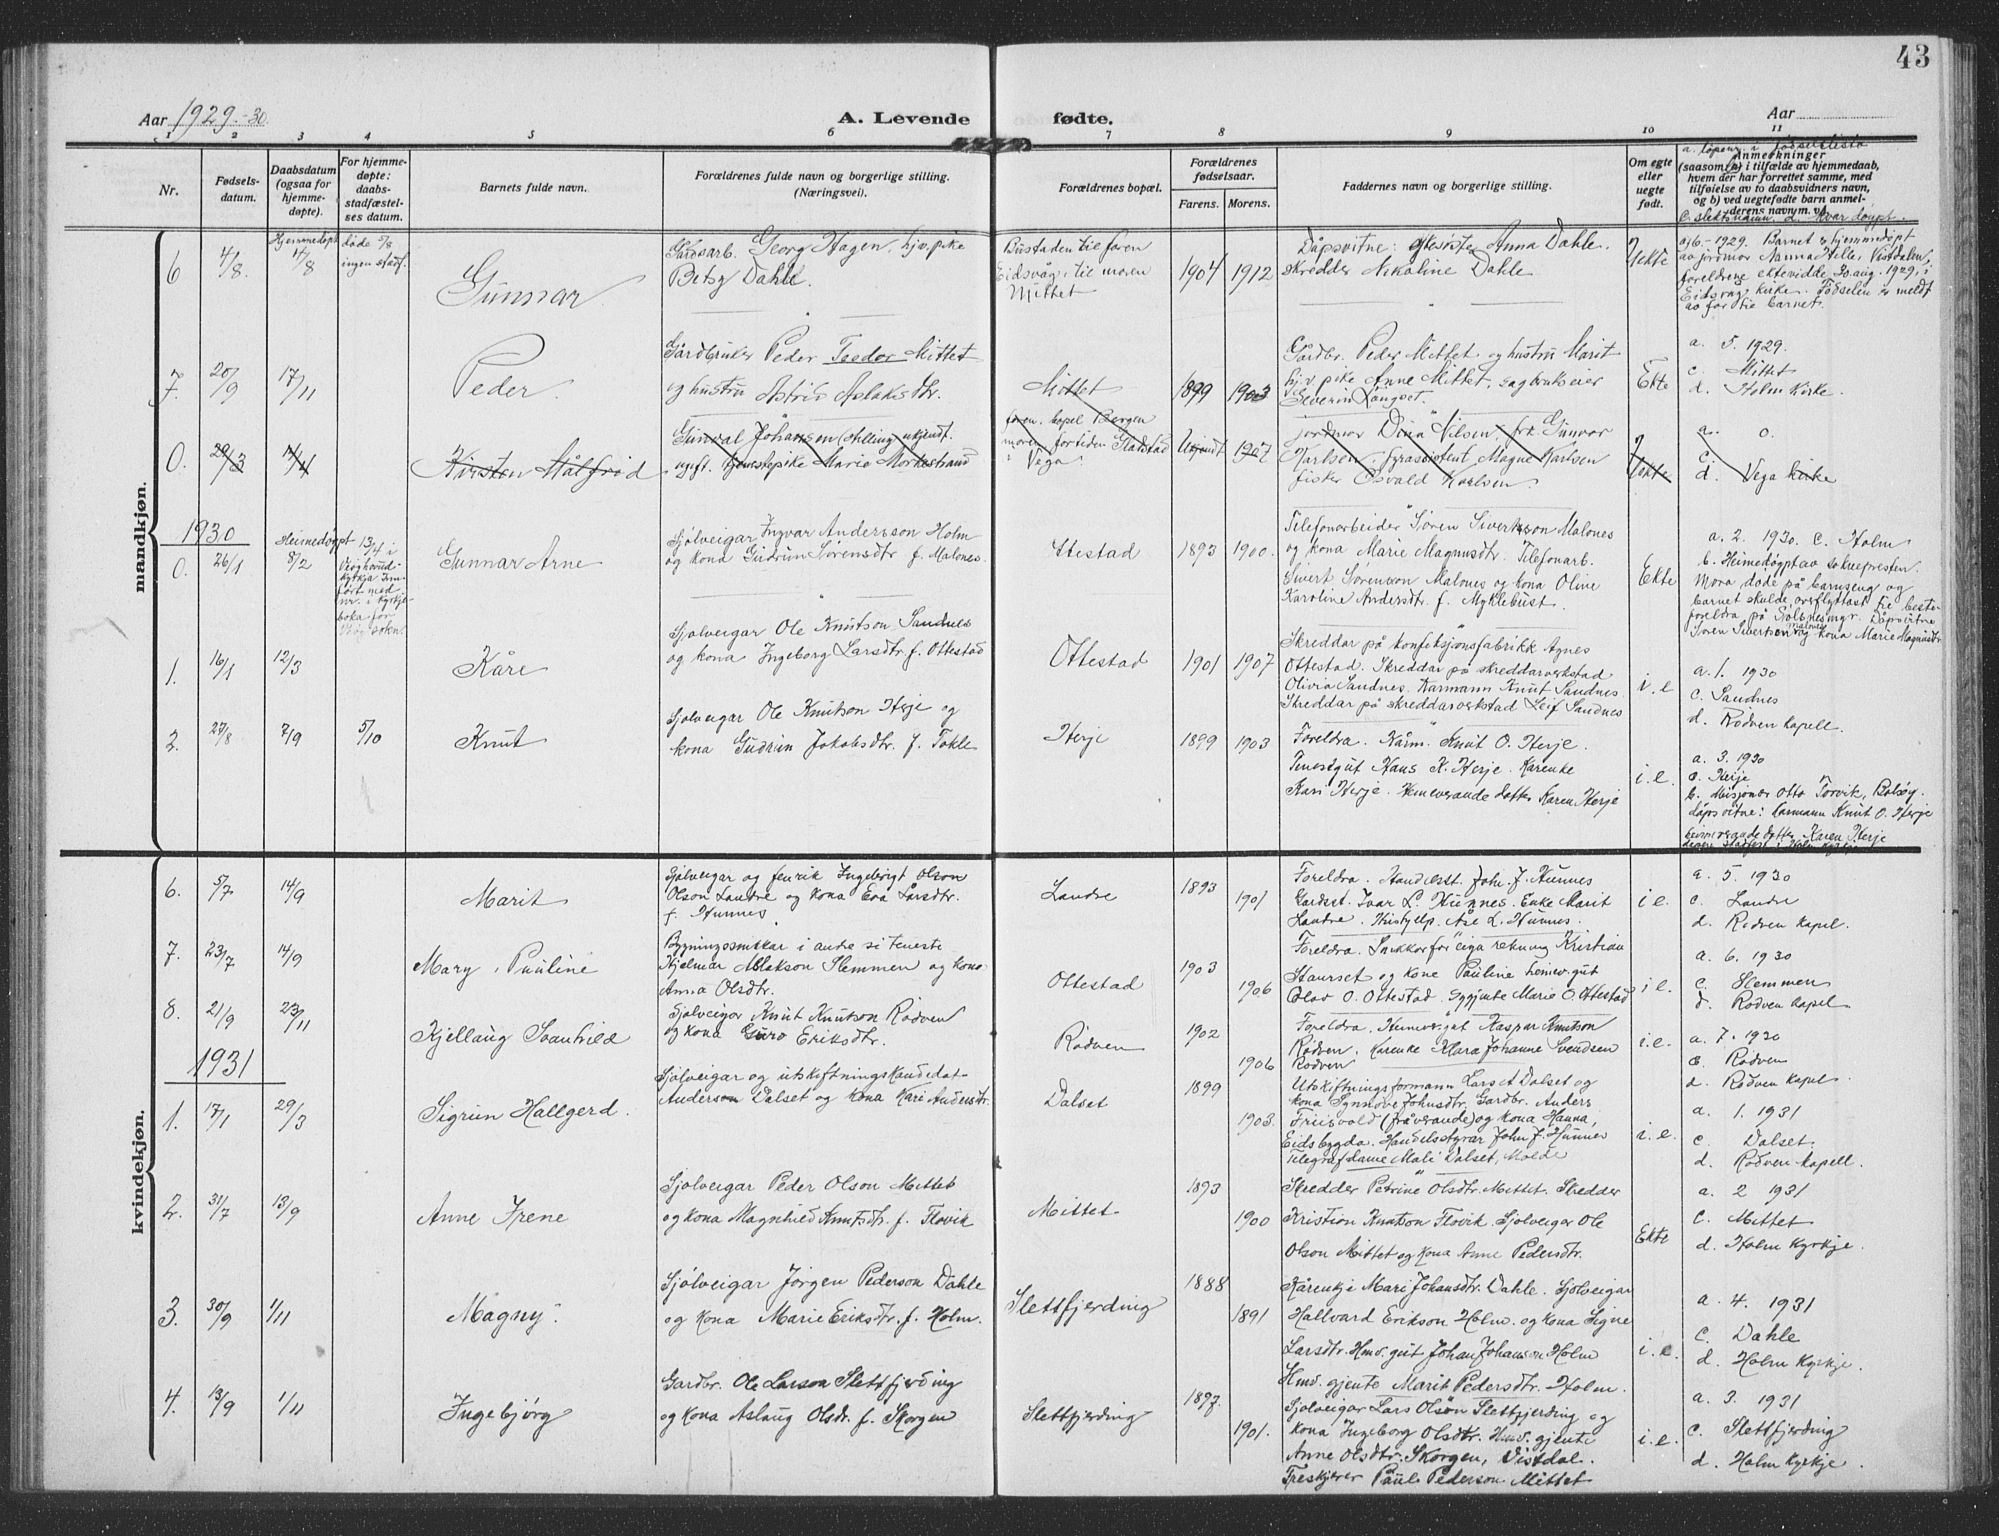 43
Aar 1929-30.
A. Levende fødte.
Aar
1 2 3 4 5 6 7 8 9 10 11
Nr.
Fødsels-
datum.
Daabsdatum
(ogsaa for
hjemme-
døpte).
For hjemme-
døpte:
daabs-
stadfæstel-
ses datum.
Barnets fulde navn.
Forældrenes fulde navn og borgerlige stilling.
(Næringsvei).
Forældrenes bopæl.
Forældrenes
fødselsaar.
Farens. Morens.
Faddernes navn og borgerlige stilling.
Om egte
eller
uegte
født.
a. løpenr. i fødselsliste
Anmerkninger
(saasom a) i tilfælde av hjemmedaab,
hvem der har forrettet samme, med
tilføielse av to daabsvidners navn,
og b) ved uegtefødte barn anmel-
derens navn m. v.
c. slektsnamn. d. kvar døypt.
mandkjøn.
6 4/8. Hjemmedøpt 4/8 døde 5/8
ingen stadf.
Gunnar
Gårdsarb. Georg Hagen, hj.v. pike
Betsy Dahle.
Bustaden til faren
Eidsvåg, til moren
Mittet
1904 1912
Dåpsvitne: Anna Dahle.
skredder Nikoline Dahle
Uekte
a) 6-1929. Barnet er hjemmedøpt
av jordmor Nanna Hille, Vistdalen,
foreldrene ektevidde 30. aug. 1929, i
Eidsvåg kirke. Fødselen er meldt
av far til barnet.
7. 20/9 17/11
Peder
Gårdbruker Peder Teodor Mittet
og hustru Astrid Aslaksdtr.
Mittet
1899 1903
Gårdbr. Peder Mittet og hustru Marit
hj.v. pike Anne Mittet, sagbrukseier
Severin Langset.
Ekte
a. 5. 1929.
c. Mittet
d. Holm kirke.
0. 29/3
Kirsten Målfrid
Gunval Johansen (stilling ukjendt.
ugift. tjenestepike Marie Morkestrand
faren. bopel Bergen
moren fortiden Gladstad
i Vega.
Ukjendt 1907
Jordmor Dina Nilsen, frk. Gunvor
Karlsen, Magne Karlsen
fisker Osvald Karlsen.
Uekte
a. 0.
c.
d. Vega kirke
1930
0. 26/1 Heimedøypt 8/2 13/4 i
Veøy hovud-
kyrkja Inn-
ført med
nr. i kyrkje-
boka for
Veøy sokn.
Gunnar Arne
Sjølveigar Ingvar Andersson Holm
og kona Gudrun Sørensdtr. f. Malones
Ottestad
1893 1900.
Telefonarbeider Søren Sivertsson Malones
og kona Marie Magnusdtr. Telefonarb.
Sivert Sørenson Malones og kona Oline
Karoline Andersdtr. f. Myklebust.
Ekte
a. 2. 1930. c. Holm
b. Heimedøypt av soknepresten.
Mora døde på barnseng og
barnet skulde overflyttast til beste-
foreldra på Sølsnesmyr. Dåpsvitne
Søren Sivertsen Malones og kona Marie Magnusdtr.
1. 16/1 12/3
Kåre
Sjølveigar Ole Knutson Sandnes
og kona Ingeborg Larsdtr. f. Ottestad
Ottestad
1901 1907
Skreddar på konfeksjonsfabrikk Agnes
Ottestad. Skreddar på skreddarverkstad
Olivia Sandnes. Kårmann Knut Sandnes.
Skreddar på skreddarverkstad Leif Sandnes
i. e
a. 1. 1930
c. Sandnes
d. Rødven kapell.
2. 27/8 7/9 5/10
Knut
Sjølveigar Ole Knutson Herje og
kona Gudrun Jakobsdtr. f. Tokle
Herje
1899 1903
Foreldra. Kårm. Knut O. Herje.
Tenestgut Hans K. Herje. Karenke
Kari Herje. Heimeverande dotter Karen Herje
i. e.
a. 3. 1930
c. Herje
b. Misjonær Otto Torvik, Bolsøy.
Dåpsvitne: kårmann Knut O. Herje
heimeverande dotter Karen Herje
kvindekjøn.
6. 5/7 14/9
Marit
Sjølveigar og fenrik Ingebrigt Olson
Olson Landre og kona Eva Larsdtr.
f. Hunnes
Landre
1893
1901
Foreldra. Handelsst. Joh. J. Hunnes
Gardst. Ivar L. Hunnes. Enke Marit
Landre. Hushjelp Åse L. Hunnes.
i e.
a. 5. 1930
c. Landre
d. Rødven kapel.
7. 23/7 14/9
Mary, Pauline
Bygningssnikkar i andre si teneste
Hjelmar Aslakson Hemmen og kona
Anna Olsdtr.
Ottestad
1903
1906
Foreldra. Snikkar for eiga rekning Kristian
Staurset og kone Pauline heimev. gut
Olav O. Ottestad. gjente Marie O. Ottestad
i e.
a. 6. 1930
c. Hemmen
d. Rødven kapel
8. 21/9 23/11
Kjellaug Svanhild
Sjølveigar Knut Knutson Rødven
og kona Guro Eriksdtr.
Rødven
1902
1906
Foreldra. Heimev. gut Kaspar Knutson
Rødven. Karenke Klara Johanne Svendsen
Rødven
i. e.
a. 7. 1930
c. Rødven
d. Rødven kapel.
1931
1. 17/1 29/3
Sigrun Hallgerd.
Sjølveigar og utskiftningskandidat
Anderson Dalset og kona Kari Andersdtr.
Dalset
1899
1903.
Utskiftningsformann Lars A Dalset og
kona Synnøve Johnsdtr. Gardbr. Anders
Friisvold (fråverande) og kona Hanna,
Eidsbygda. Handelsstyrar John J. Hunnes
Telegrafdame Mali Dalset, Molde
i. e.
a. 1. 1931
c. Dalset.
d. Rødven kapell.
2. 31/7 13/9
Anne Irene
Sjølveigar Peder Olson Mittet
og kona Magnhild Knutsdtr. f. Flovik
Mittet
1893
1900
Skredder Petrine Olsdtr. Mittet. Skredder
Kristian Knutson Flovik. Sjølveigar Ole
Olson Mittet og kona Anne Pedersdtr.
Ekte
a. 2 1931
c. Mittet
d. Holm kyrkje.
3. 30/9 1/11
Magny.
Sjølveigar Jørgen Pederson Dahle
og kona Marie Eriksdtr. f. Holm.
Slettfjerding
1888
1891
Kårenkje Mari Johansdtr. Dahle. Sjølveigar
Hallvard Erikson Holm og kona Signe
Larsdtr. Hmv. gut Johan Johanson Holm
Hmv. gjente Marit Pedersdtr. Holm.
i. e.
a. 4. 1931
c. Dahle
d. Holm kyrkje.
4. 13/9 1/11
Ingebjørg
Gardbr. Ole Larson Slettfjerding
og kona Aslaug Olsdtr. f. Skorgen
Slettfjerding
1897.
1901.
Sjølveigar Lars Olson Slettfjerding og
kona Ingeborg Olsdtr. Hmv. gjente
Anne Olsdtr. Skorgen, Vistdal.
Treskjerer Paul Pederson Mittet
i. e.
a. 3. 1931
c. Slettfjerding
d. Holm kyrkje.